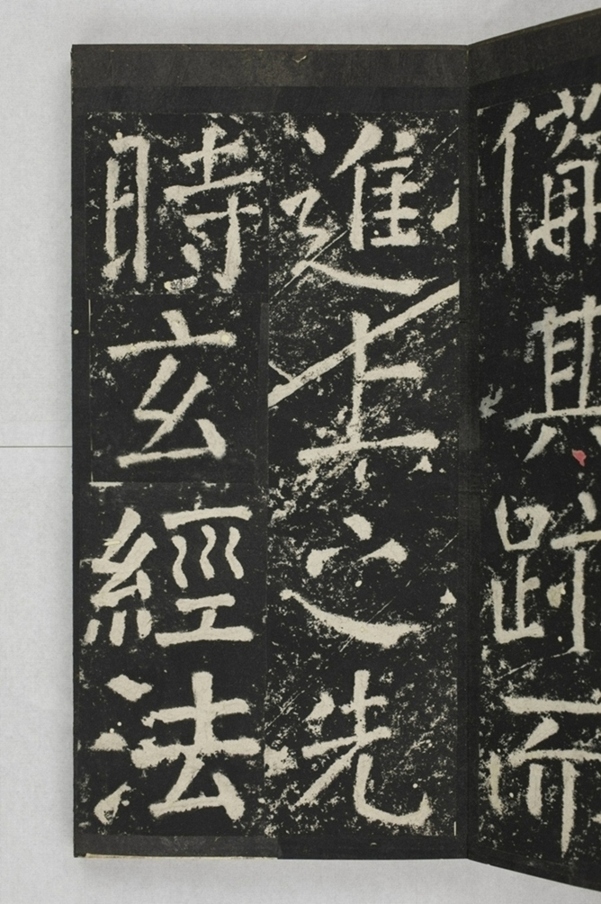 備其而
進之先
時玄經法